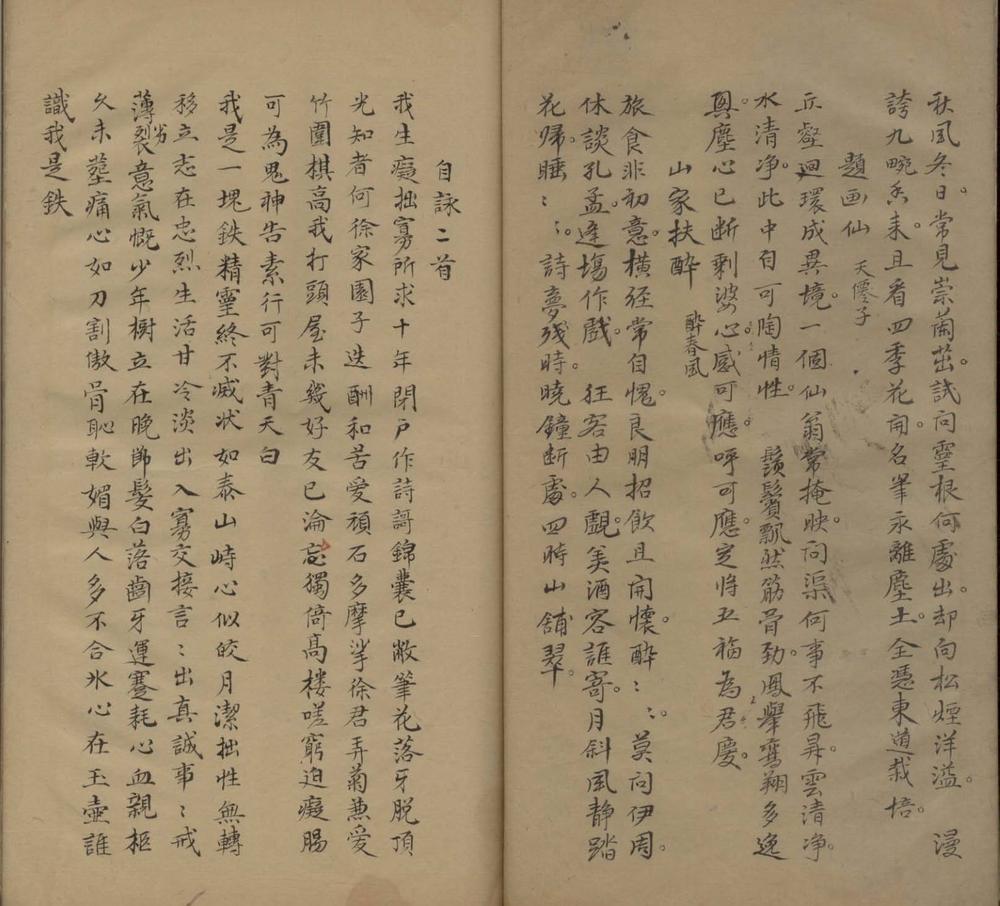 秋風冬日常見崇蘭茁試問靈根何處出却向松煙洋溢　漫
誇九畹香來且看四季花開名筆永離塵土全憑東道栽培
題画仙　天僊子
丘壑迴環成異境一個仙翁常掩映问渠何事不飛昇雲清净
水清净此中自可陶情性　鬚鬢飄然筋骨劲鳳舉鸞翔多逸
興塵心已断剩婆心感可應呼可應定将五福為君慶
山家扶醉　醉春風
旅食非初意橫経常自愧良明招飲且開懷醉〻〻莫问伊周
休談孔孟逢塲作戲　狂客由人覷美酒容誰寄月斜風静踏
花歸睡〻〻詩夢残時曉鐘断處四時山舖翠
自詠二首
我生癡拙寡所求十年閉户作詩謌錦囊已敝筆花落牙脱頂
光知者何徐家園子迭酬和苦愛頑石多摩挲徐君弄菊兼愛
竹圍棋高我打頭屋未幾好友已淪忘獨倚高楼嗟窮迫癡腸
可為鬼神告素行可對青天白
我是一塊鉄精靈終不滅状如泰山峙心似皎月潔拙性無轉
移立志在忠烈生活甘冷淡出入寡交接言〻出真誠事〻戒
薄劣裂意氣慨少年樹立在晚節髮白落齒牙運蹇耗心血親柩
久未塟痛心如刀割傲骨恥軟媚與人多不合氷心在玉壷誰
識我是鉄